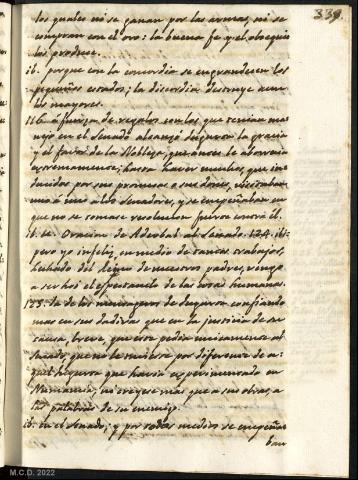 339.
los quales ni se ganan por las armas, ni se
compran con el oro: la buena fe y el obsequio
los produce.
ib. porque con la concordia se engrandecen los
pequeños estados; la discordia destruye aun
los mayores.
116. à fuerza de regalos con los que tenian ma-
nejo en el senado alcanzó Jugurta la gracia
y el favor de la Nobleza, que antes le aborrecia
extremamente; hasta haver muchos, que in-
ducidos por sus promesas o sus dones, visitaban
uno à uno à los Senadores, y se empeñaban en
que no se tomase resolucion fuerte contra el.
it. te Oracion de Aderbal al Senado. 124. ib:
pero yo infeliz, en medio de tantos trabajos,
hechado del Reino de nuestros padres, vengo
a ser hoi el espectaculo de las cosas humanas.
133. la de los mensageros de Jugurta confiando
mas en sus dadivas que en la justicia de su
causa, breve, que este pedia unicamente al
Senado, que no le tuviese por diferente de a-
quel Jugurta que havia experimentado en
Numancia, ni creyese mas que a sus obras, a
las palabras de su enemigo.
ib. en el Senado; y por todos medios se empeña-
ban
M.C.D. 2022